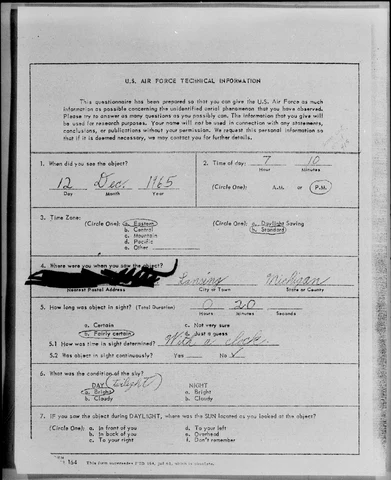 U.S. AIR FORCE TECHNICAL INFORMATION
This questionnaire has been prepared so that you can give the U.S. Air Force as much
information as possible concerning the unidentified aerial phenomenon that you have observed.
Please try to answer as many questions as you possibly can. The information that you give will
be used for research purposes. Your name will not be used in connection with any statements,
conclusions, or publications without your permission. We request this personal information so
that if it is deemed necessary, we may contact you for further details.
1. When did you see the object?
12 Dec. 1965
Day Month Year
2. Time of day: 7 10
Hour Minutes
(Circle One): A.M. or P.M.
3. Time Zone:
(Circle One): a. Eastern
b. Central
c. Mountain
d. Pacific
e. Other
(Circle One): a. Daylight Saving
b. Standard
4. Where were you when you saw the object?
Lansing Michigan
Nearest Postal Address City or Town State or County
5. How long was object in sight? (Total Duration) 0 20
Hours Minutes Seconds
a. Certain c. Not very sure
b. Fairly certain d. Just a guess
5.1 How was time in sight determined? With a clock
5.2 Was object in sight continuously? Yes No ✓
6. What was the condition of the sky?
DAY (twilight) NIGHT
a. Bright a. Bright
b. Cloudy b. Cloudy
7. IF you saw the object during DAYLIGHT, where was the SUN located as you looked at the object?
(Circle One): a. In front of you d. To your left
b. In back of you e. Overhead
c. To your right f. Don't remember
164 This form supersedes